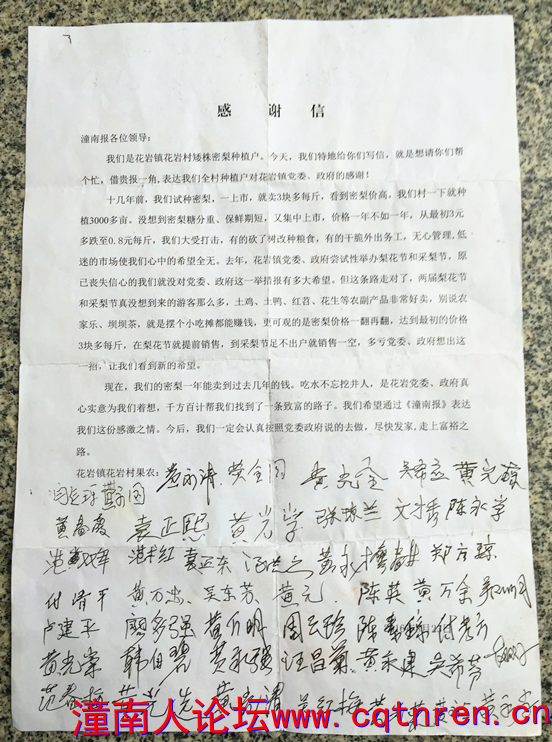 感 谢 信
潼南报各位领导:
我们是花岩镇花岩村矮株密梨种植户。今天，我们特地给你们写信，就是想请你们帮
个忙，借贵报一角,表达我们全村种植户对花岩镇党委、政府的感谢！
十几年前，我们试种密梨，一上市，就卖3块多每斤，看到密梨价高，我们村一下就种
植3000多亩。没想到密梨糖分重、保鲜期短，又集中上市，价格一年不如一年，从最初3元
多跌至0.8元每斤，我们大受打击，有的砍了树改种粮食，有的干脆外出务工，无心管理,低
迷的市场使我们心中的希望全无。去年，花岩镇党委、政府尝试性举办梨花节和采梨节，原
已丧失信心的我们就没对党委、政府这一举措报有多大希望。但这条路走对了，两届梨花节
和采梨节真没想到来的游客那么多，土鸡、土鸭、红苕、花生等农副产品非常好卖，别说农
家乐、坝坝茶，就是摆个小吃摊都能赚钱，更可观的是密梨价格一翻再翻，达到最初的价格
3块多每斤，在梨花节就提前销售，到采梨节足不出户就销售一空，多亏党委、政府想出这
一招，让我们看到新的希望。
现在，我们的密梨一年能卖到过去几年的钱。吃水不忘挖井人，是花岩党委、政府真
心实意为我们着想，千方百计帮我们找到了一条致富的路子。我们希望通过《潼南报》表达
我们这份感激之情。今后，我们一定会认真按照党委政府说的去做，尽快发家,走上富裕之
路。
花岩镇花岩村果农:
袁正熙 黄光学 张琼兰 陈永学
袁正东
黄万忠 吴东芳 黄元 陈英 黄万余
卢建平 廖多强 周云珍
黄光荣 韩伯碧 黄永强 汪昌菊 黄永建
范春梅
潼南人论坛www.cqtnren.cn